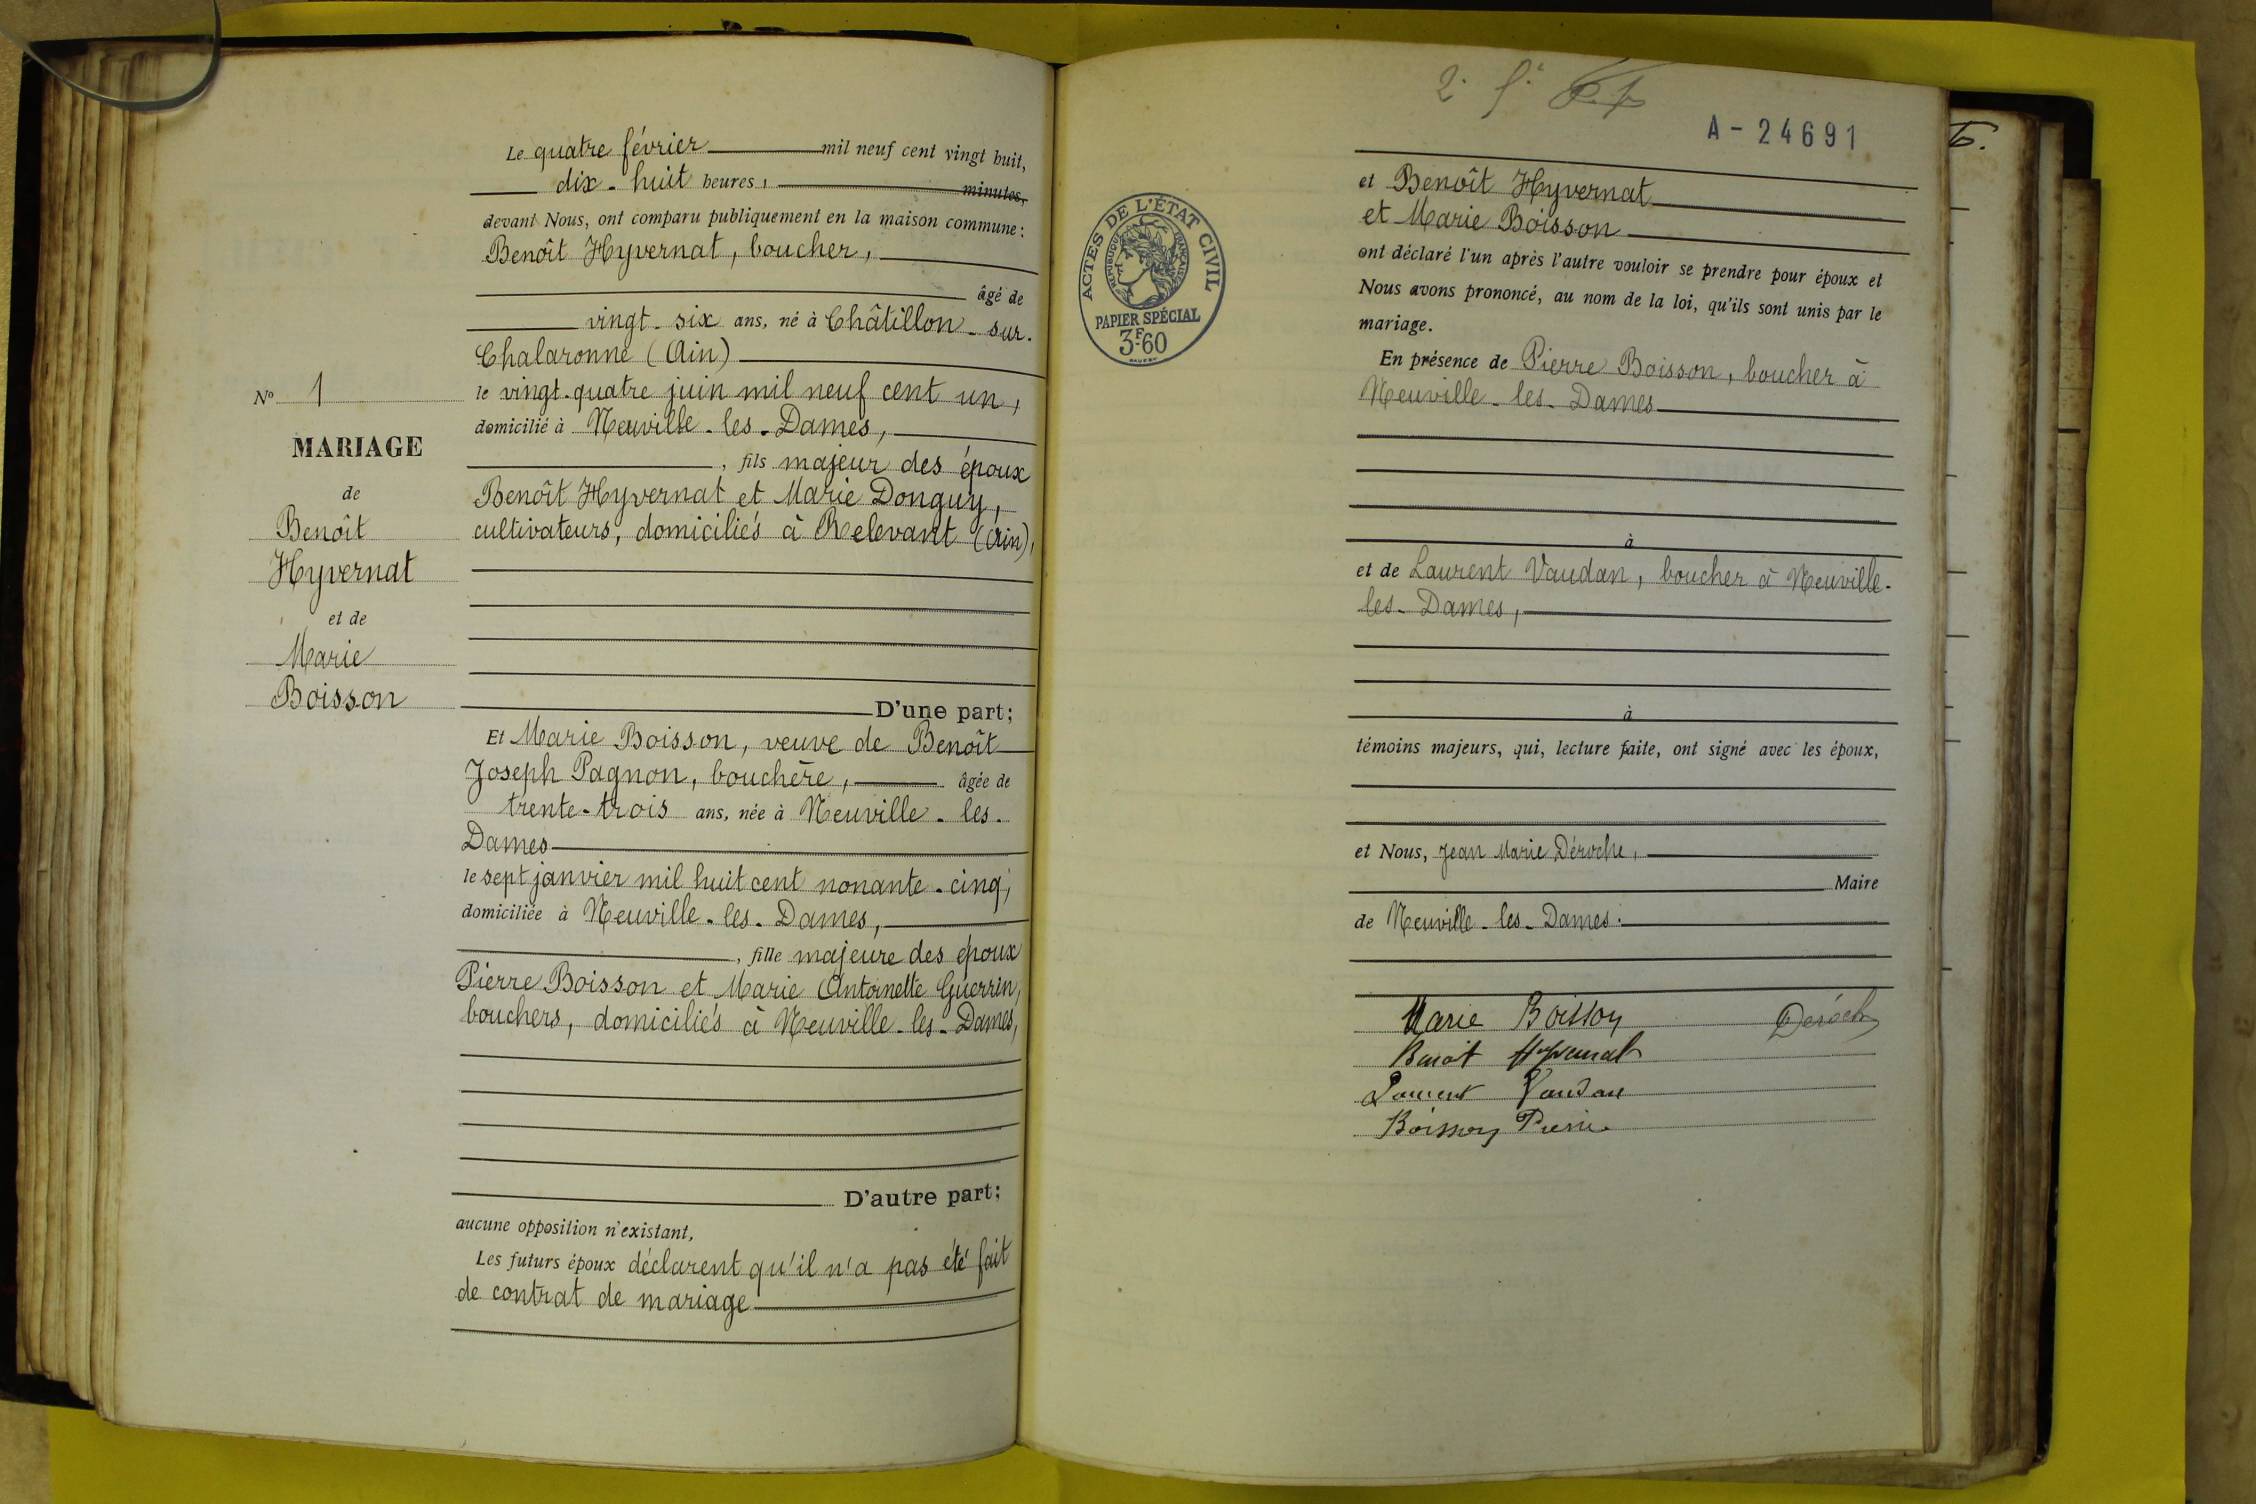 Le quatre février mil neuf cent vingt huit,
dix-huit heures, minutes,
devant Nous, ont comparu publiquement en la maison commune:
Benoît Hyvernat, boucher,
âgé de
vingt-six ans, né à Châtillon-sur-
Chalaronne (Ain)
le vingt-quatre juin mil neuf cent un,
domicilié à Neuville-les-Dames,
, fils majeur des époux
Benoît Hyvernat et Marie Donguy,
cultivateurs, domiciliés à Relevant (Ain),
D'une part;
Et Marie Boisson, veuve de Benoît
Joseph Pagnon, bouchère, âgée de
trente-trois ans, née à Neuville-les-
Dames
le sept janvier mil huit cent nonante-cinq,
domiciliée à Neuville-les-Dames,
, fille majeure des époux
Pierre Boisson et Marie Antoinette Guerrin,
bouchers, domiciliés à Neuville-les-Dames,
D'autre part;
aucune opposition n'existant,
Les futurs époux déclarent qu'il n'a pas été fait
de contrat de mariage
No 1
MARIAGE
de
Benoît
Hyvernat
et de
Marie
Boisson
A-24691
ACTES DE L'ÉTAT CIVIL
RÉPUBLIQUE FRANÇAISE
PAPIER SPÉCIAL
3F60
et Benoît Hyvernat
et Marie Boisson
ont déclaré l'un après l'autre vouloir se prendre pour époux et
Nous avons prononcé, au nom de la loi, qu'ils sont unis par le
mariage.
En présence de Pierre Boisson, boucher à
Neuville-les-Dames
à
et de Laurent Vaudan, boucher à Neuville-
les-Dames,
à
témoins majeurs, qui, lecture faite, ont signé avec les époux,
et Nous, Jean Marie Déroche,
Maire
de Neuville-les-Dames.
Marie Boisson
Benoit Hyvernat
Laurent Vaudan
Boisson Pierre